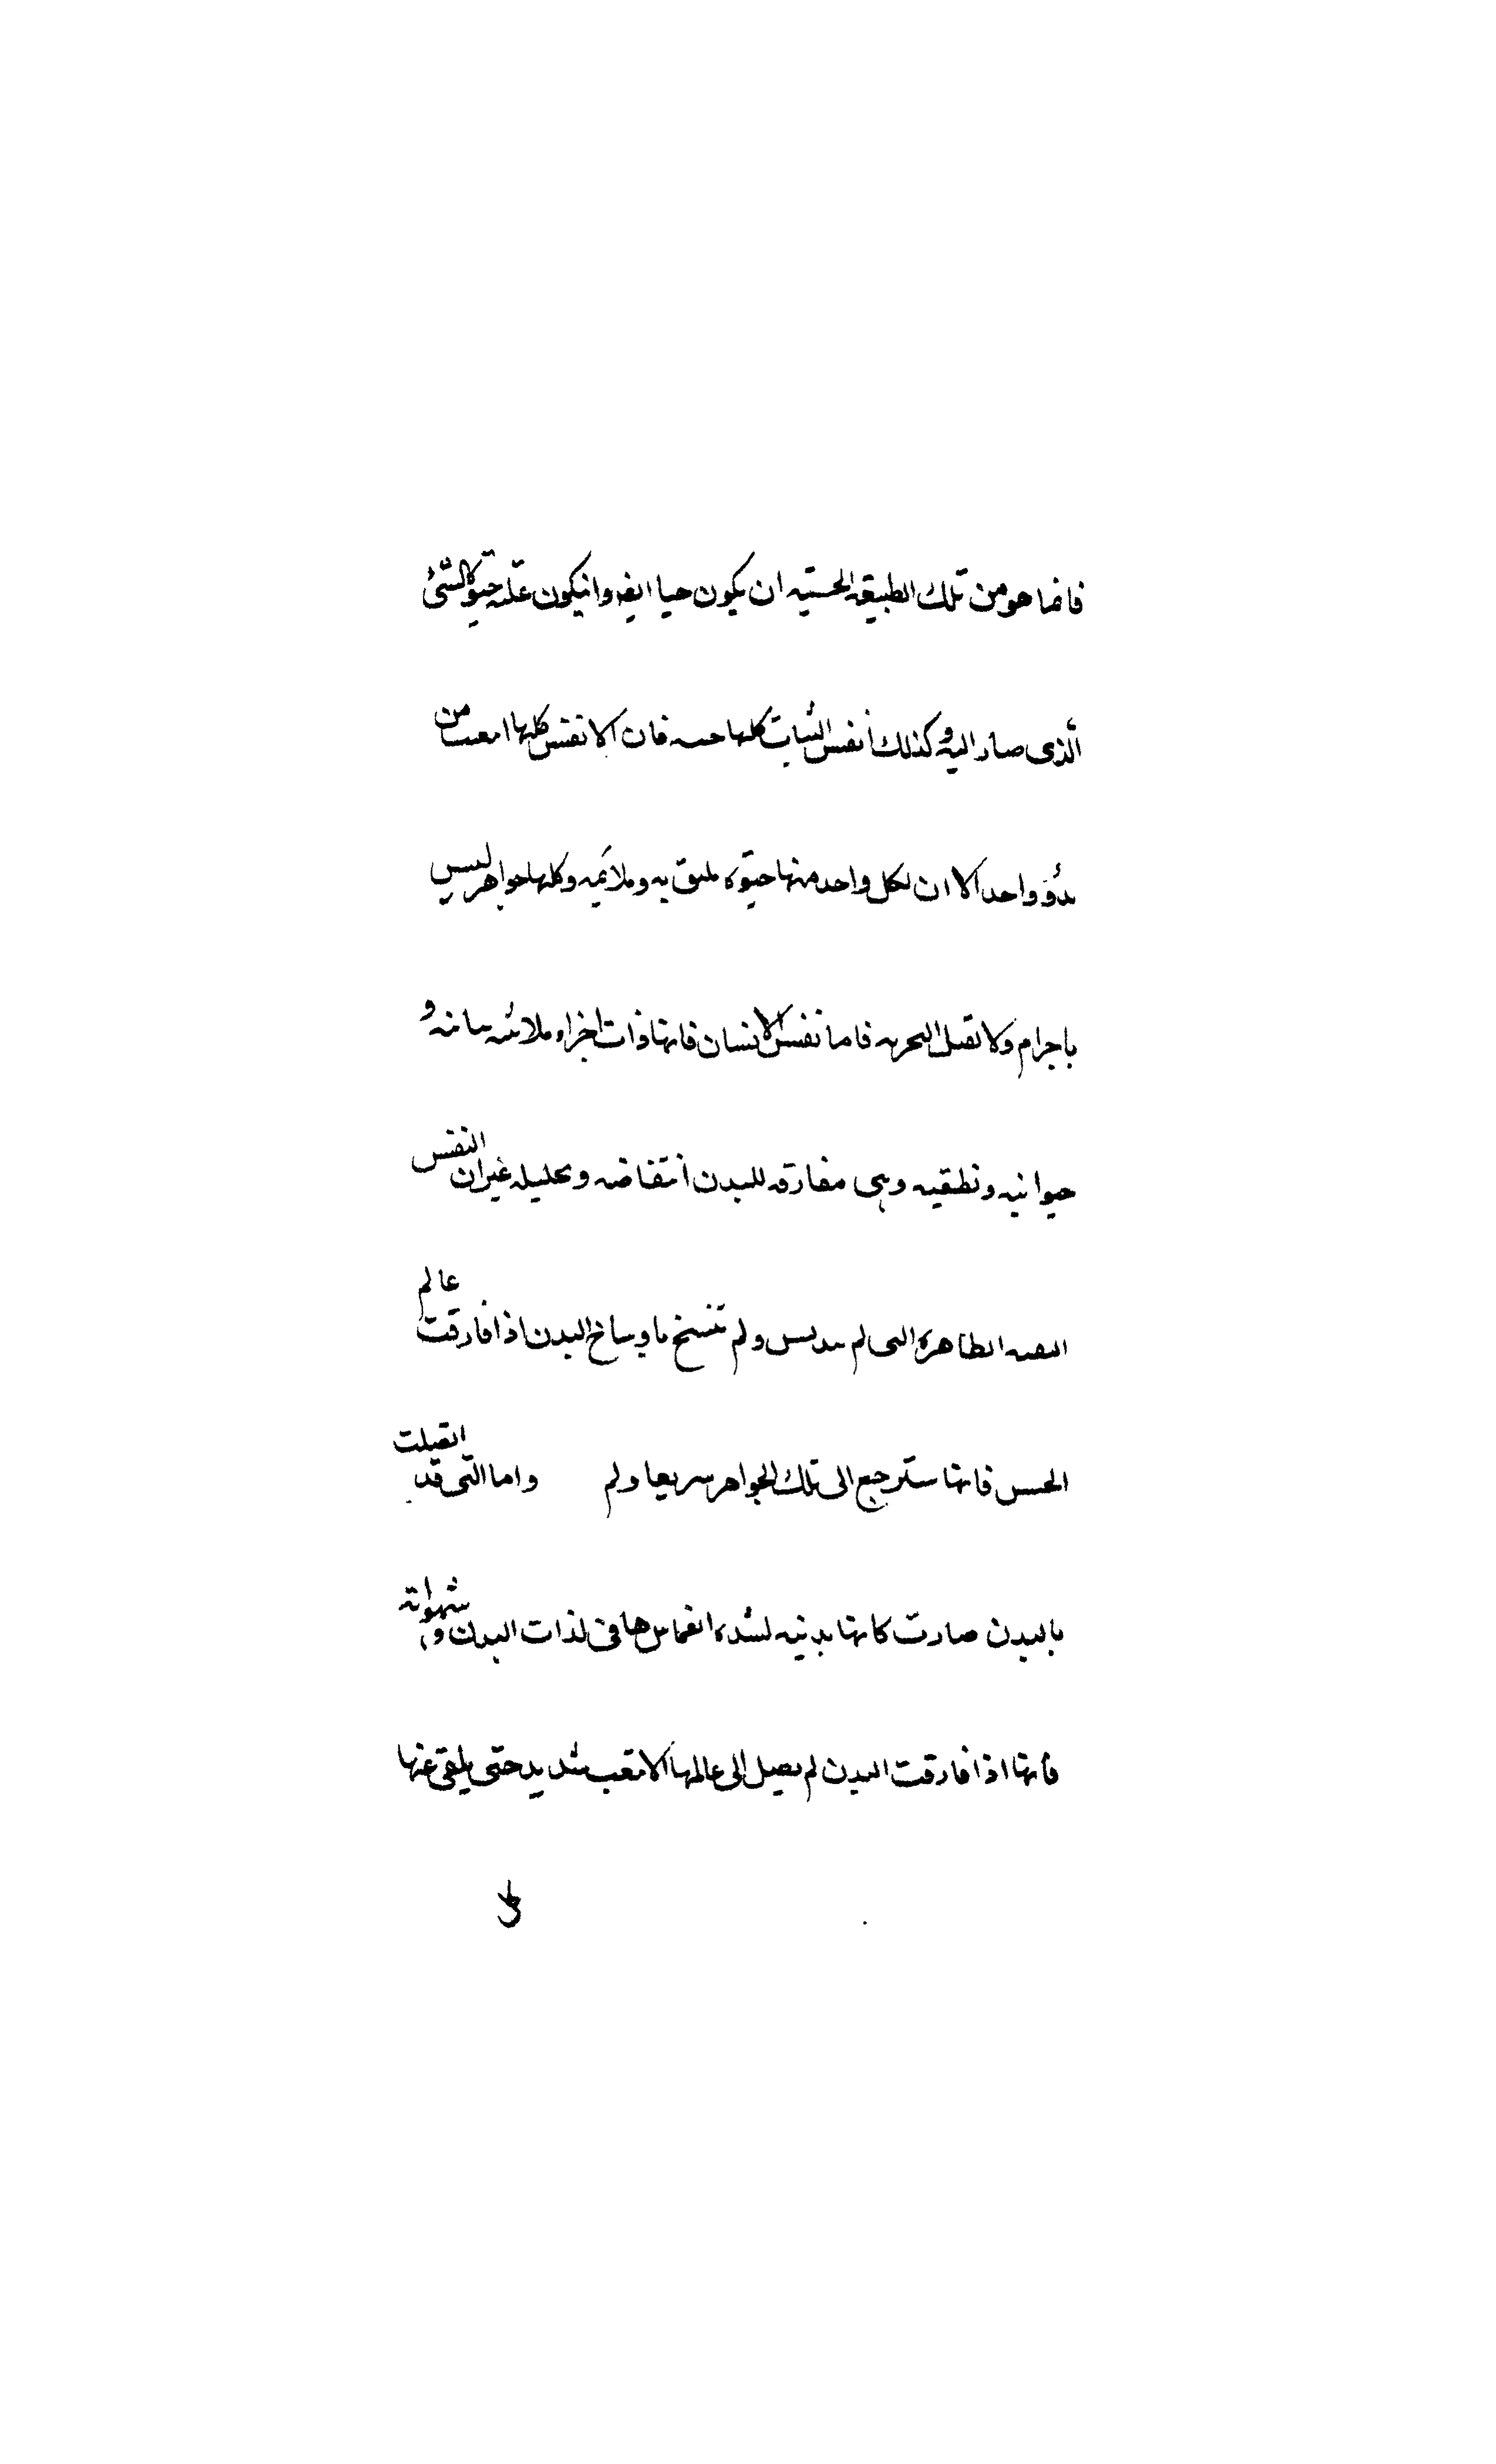 فانما هو من تلك الطبيعة الحسّيّه ان يكون حيا ايضا وانيكون علّته حيوة الشئ
الّذى صار اليه وكذلك أنفس النبات كلها حيه فان الانفس كلها امعت من
بدؤ واحد الا ان لكل واحد منها حيوه مليق به وملائمه وكلها جواهر ليس
باجرام ولا تقبل التجزيه فاما نفس الانسان فانها ذات اجزاء ملائه نباتيه و
حيوانيه ونطقيه وهى مفارقه للبدن انتقاضه وتحليله غير ان النفس
النقيه الطاهرة التى لم تتدنس ولم تتسخ باوساخ البدن اذا فارقت عالم
الحس فانها سترجع الى تلك الجواهر سريعا ولم واما التى قد اتصلت
بالبدن صارت كانها بدنيه لشده انغماسها فى لذات البدن وشهواته
فانها اذا فارقت البدن لم تصل الى عالمها الا بتعب شديد حتى يلقى عنها
كل